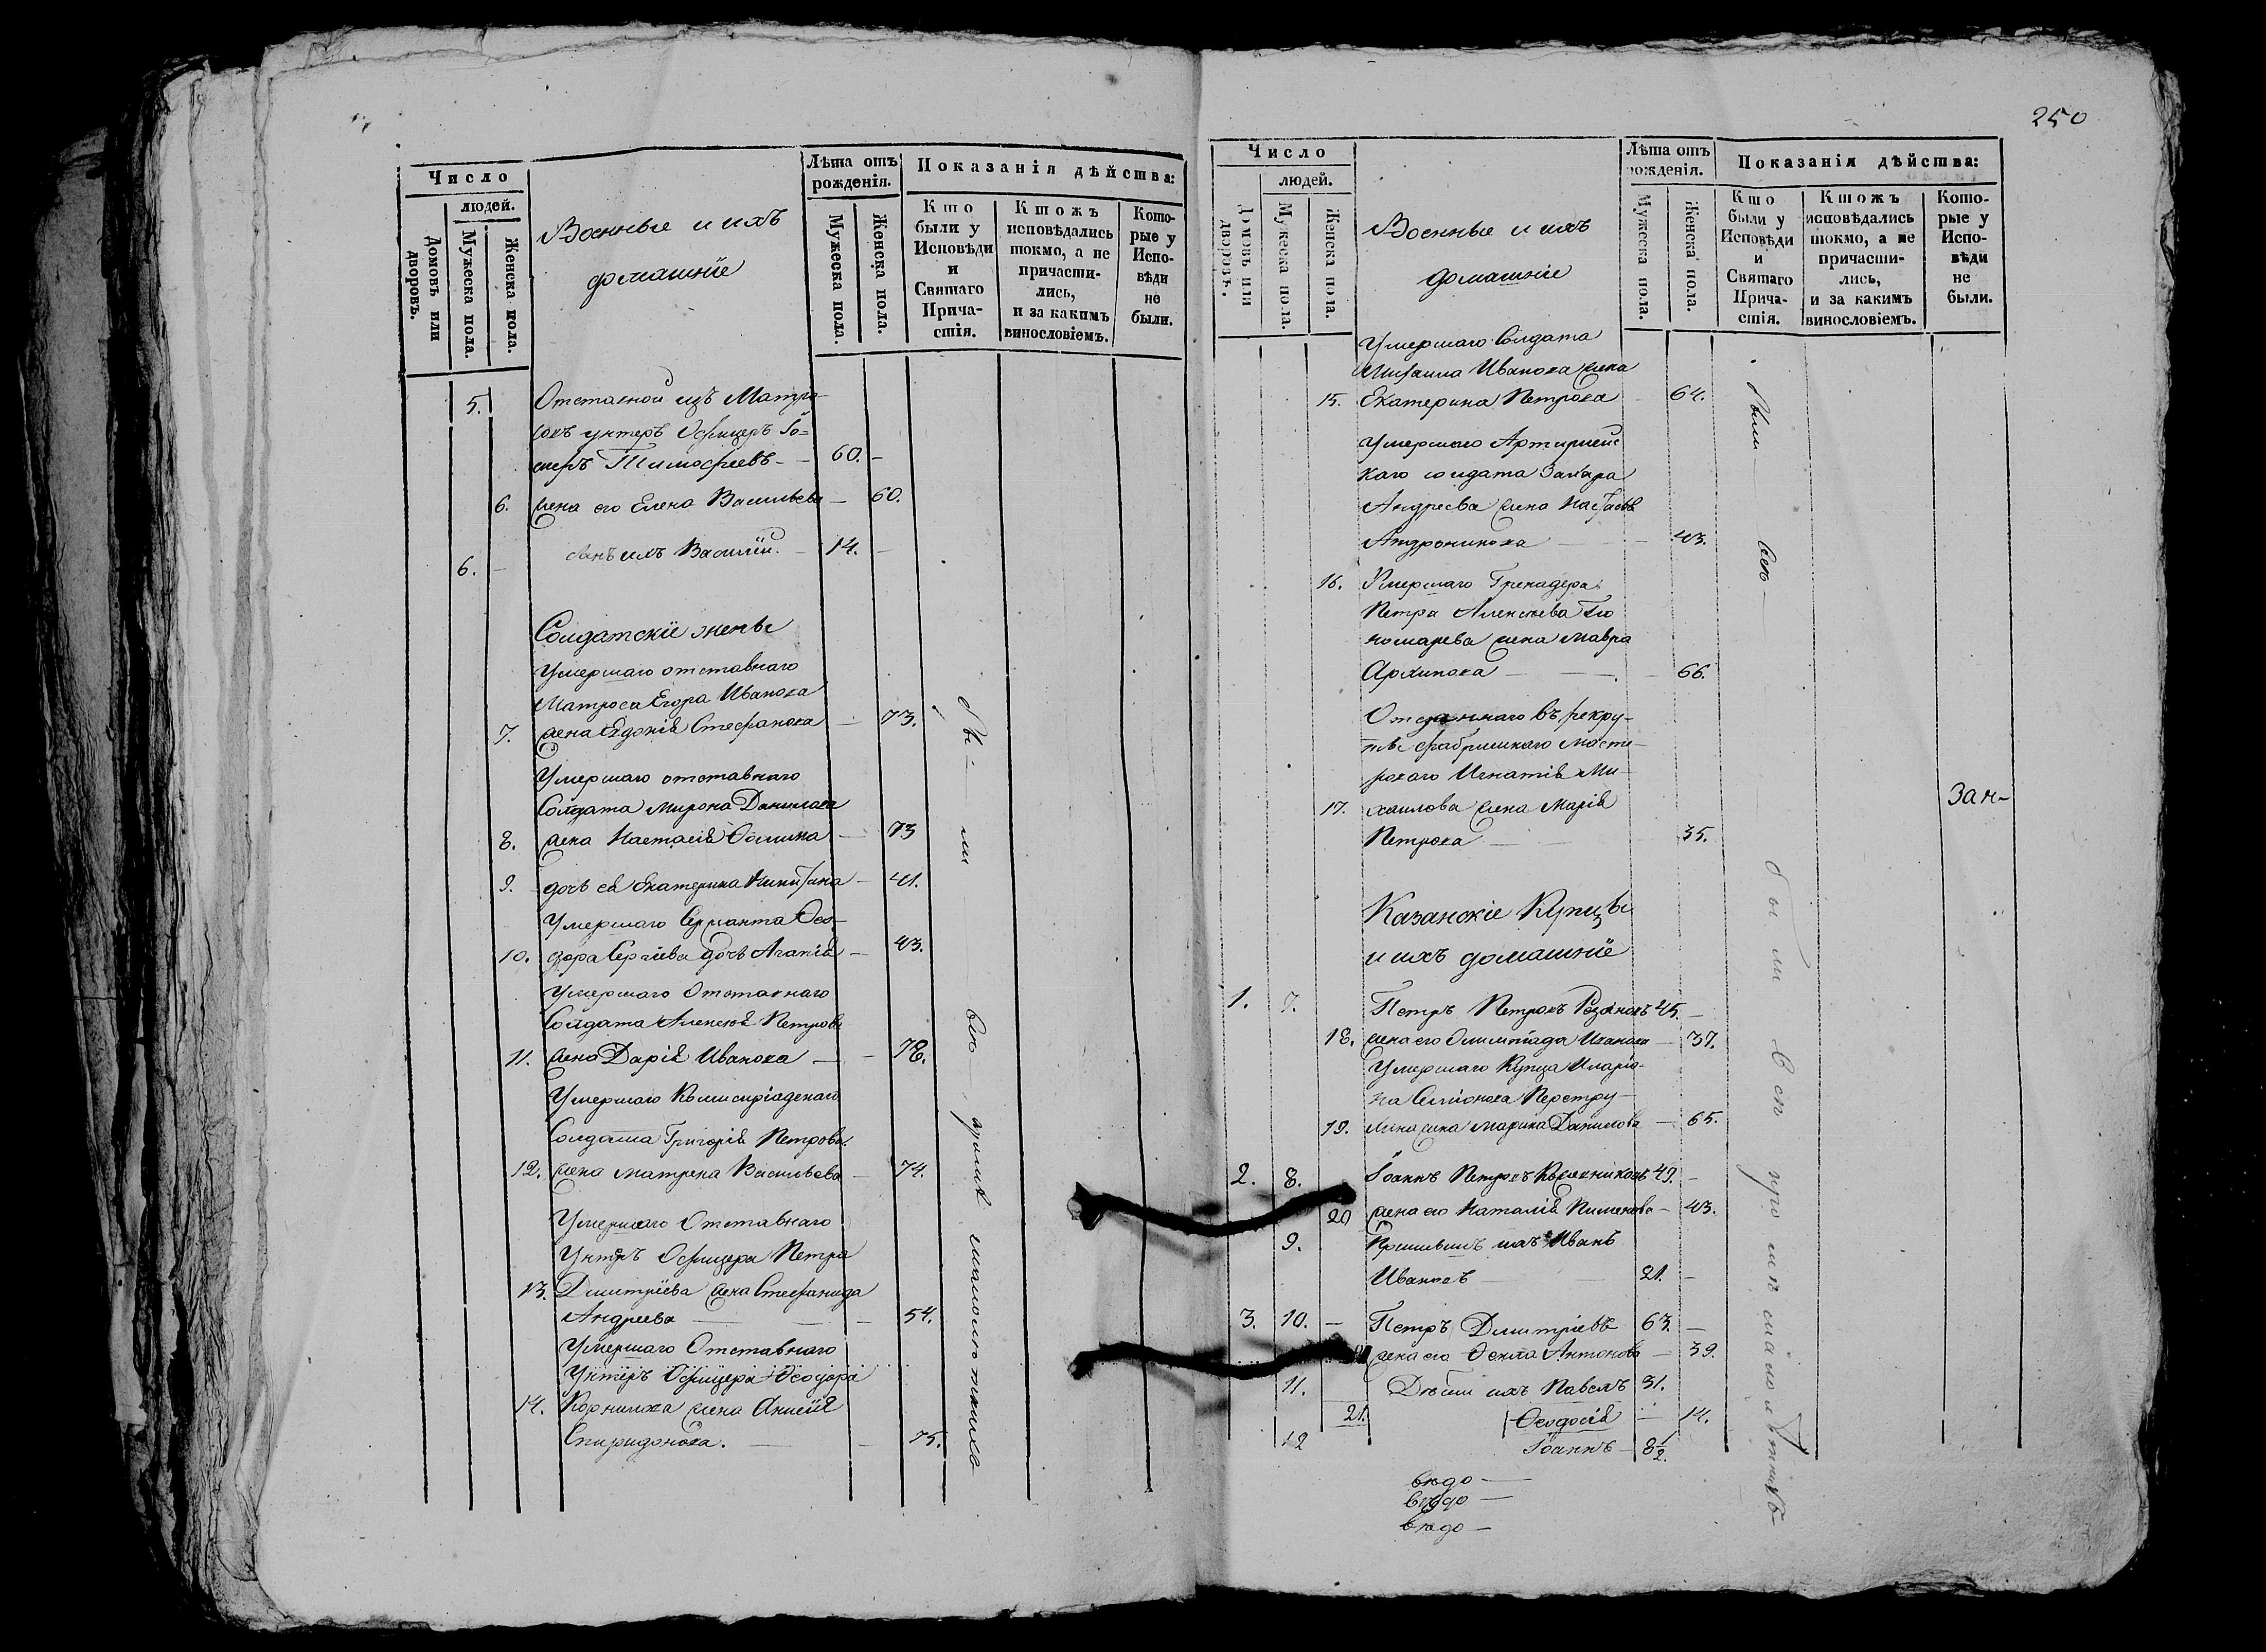 Число
людей.
Домовъ или дворовъ.
Мужеска пола.
Женска пола.
Военные и ихъ
домашнїе
Лѣта отъ рожденія.
Мужеска пола.
Женска пола.
Показанія дѣйства:
Кто были у Исповѣди и Святаго Прича-стія.
Ктожъ исповѣдались токмо, а не причасти-лись, и за какимъ винословіемъ.
Кото-рые у Испо-вѣди не были.
5. Отставной изъ Матро-
совъ унтеръ Офицеръ
Тимофеевъ - 60. -
6. жена его Елена Васильева - 60.
6. - сынъ ихъ Василїй. - 14. -
Солдатскїе жены
Умершаго отставнаго
Матроса Егора Иванова
7. жена Евдокія Стефанова - 73.
Умершаго отставнаго
Солдата Мирона Данилова
8. жена Настасія - 73
9. дочь ея Екатерина - 41.
Умершаго Сержанта Ѳео-
10. дора Сергіева дочь Агапія - 43.
Умершаго Отставнаго
Солдата Алексѣя Петрова
11. жена Дарія Иванова - 78.
Умершаго
Солдата Григорія Петрова
12. жена Матрена Васильева - 74.
Умершаго Отставнаго
Унтеръ Офицера Петра
13. Димитріева жена Стефанида
Андреева - 54.
Умершаго Отставнаго
Унтеръ Офицера Ѳеодора
14. Корнилова жена Анисія
Спиридонова. - 75.
бы - ли всѣ
250
Число
людей.
Домовъ или дворовъ.
Мужеска пола.
Женска пола.
Военные и ихъ
домашніе
Лѣта отъ рожденія.
Мужеска пола.
Женска пола.
Показанія дѣйства:
Кто были у Исповѣди и Святаго Прича-стія.
Ктожъ исповѣдались токмо, а не причасти-лись, и за какимъ винословіемъ.
Кото-рые у Испо-вѣди не были.
Умершаго Солдата
Михаила Иванова жена
15. Екатерина Петрова - 64.
Умершаго Артилейс
каго солдата Захара
Андреева жена Настасья
Андроникова - 43.
16. Умершаго Гренадера
Петра Алексѣева По
номарева жена Мавра
Архипова - 66.
Отданнаго въ рекру-
ты фабришнаго масте-
роваго Игнатія Ми-
17. хаилова жена Марія
Петрова - 35.
Зан-
Казанскіе Купцы
и ихъ домашнїе
1. 7. Петръ Петровъ 45. -
18. жена его Олимпіада Иванова - 37.
Умершаго Купца Иларіо-
на Семіонова Перетру-
19. жена Марина Данилова - 65.
2. 8. Іоаннъ Петровъ 49. -
20 жена его Наталія Пименова - 43.
9. ихъ Иванъ
Ивановъ - 21. -
3. 10. - Петръ Димитріевъ 63. -
жена его Ѳекла Антонова - 39.
11. Дѣти ихъ Павелъ 31.
21. Ѳеодосія - 14.
12 Іоаннъ - 8½.
были всѣ
были всѣ